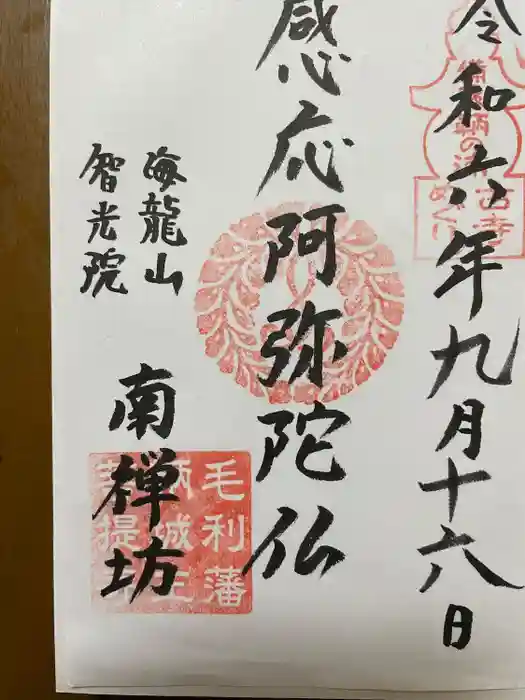 令和六年九月十六日
感応阿弥陀仏
海龍山
智光院
南禅坊
毛利藩
鞆城主
菩提寺
鞆の浦
古寺
めぐり